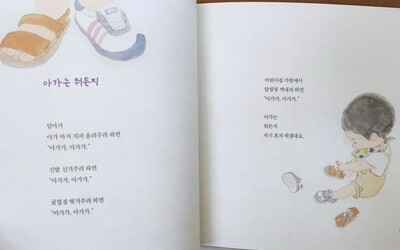 아가는 뭐든지
엄마가
아가 바지 지퍼 올려주려 하면
"아가가, 아가가."
신발 신겨주려 하면
"아가가, 아가가."
귤껍질 벗겨주려 하면
"아가가, 아가가."
어린이집 가방에서
알림장 꺼내려 하면
"아가가, 아가가."
아가는
뭐든지
자기 혼자 하겠대요.